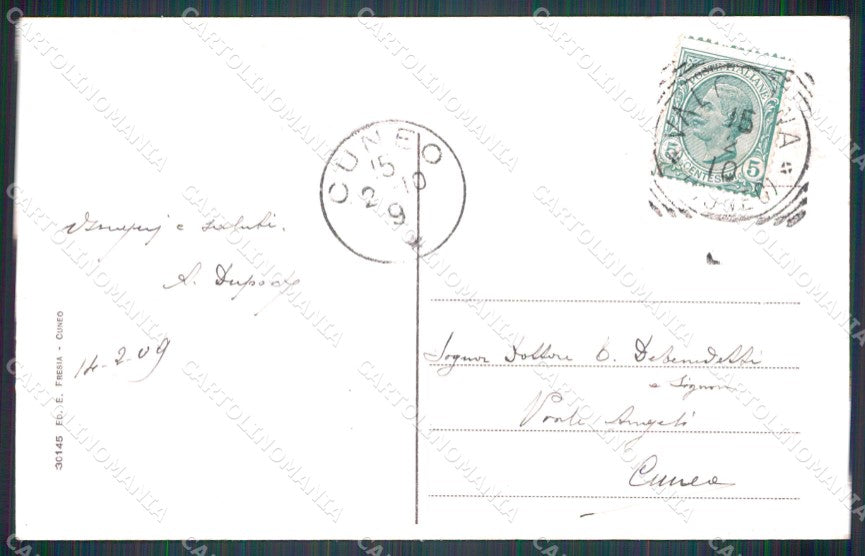 POSTE ITALIANE
5 CENTESIMI 5
15
2
10
CUNEO
CUNEO
15 10
2 9
e saluti.
A.
14-2-09
30145 ED. E. FRESIA - CUNEO
Signor Dottore C. Debenedetti
e Signora
Cuneo
CARTOLINOMANIA